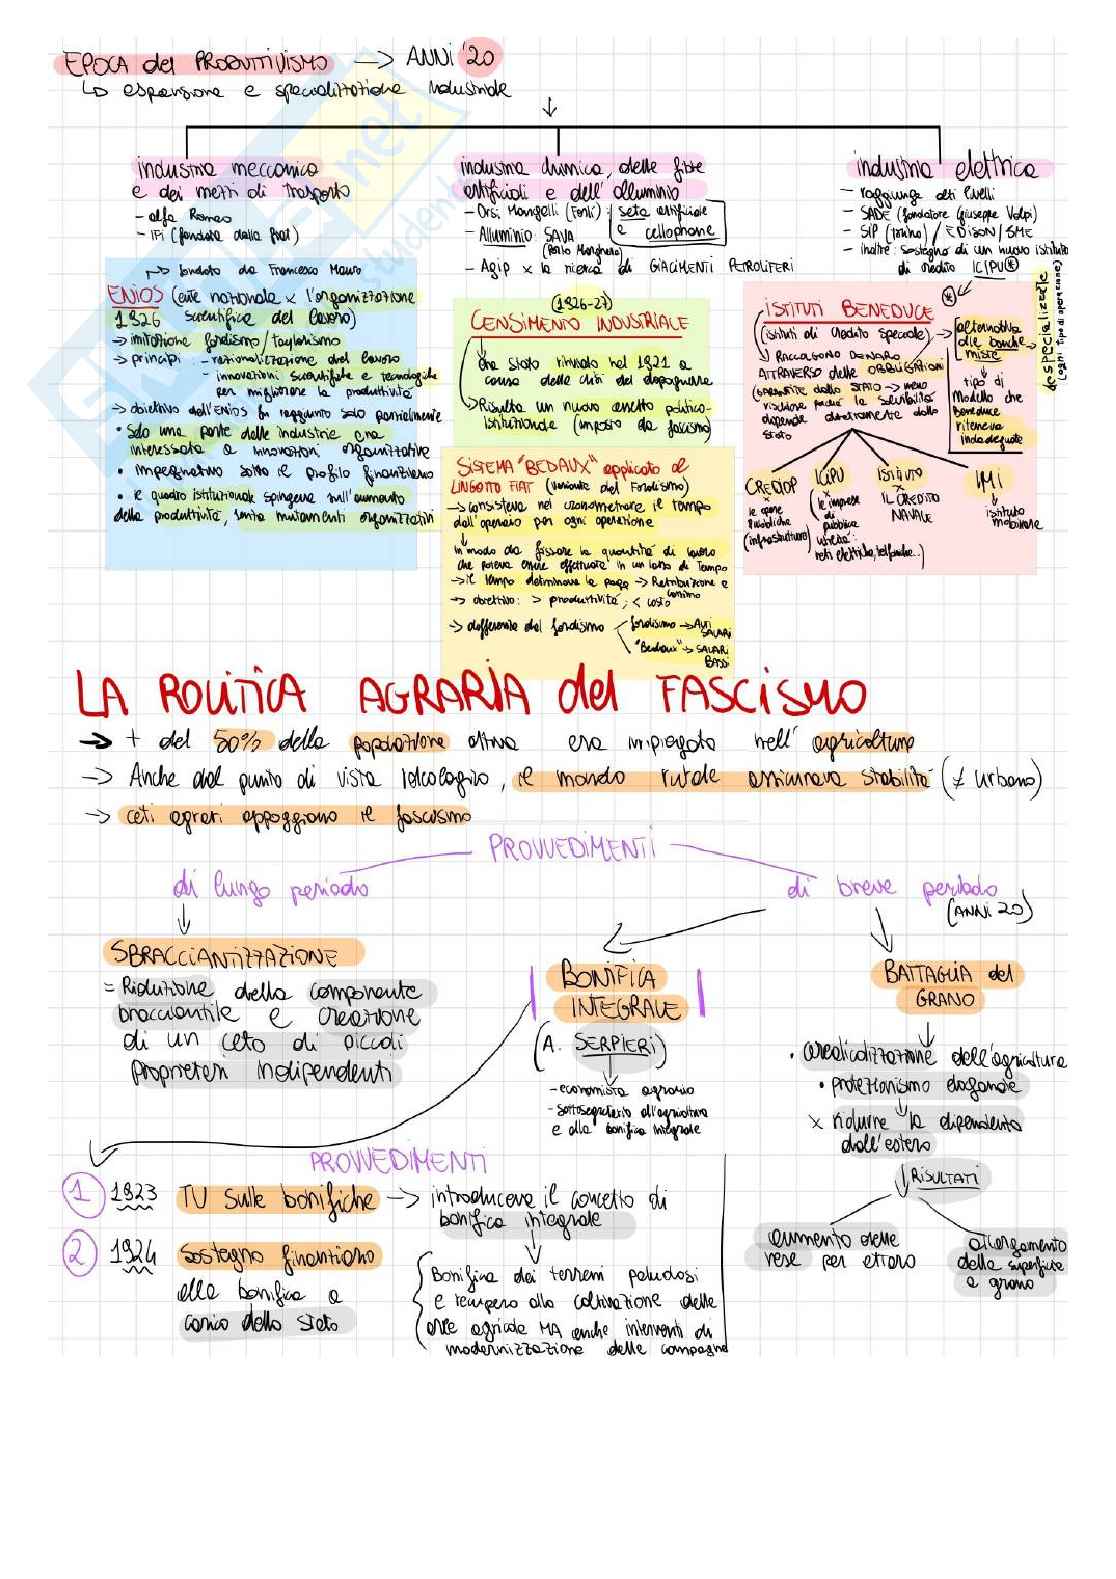 EPOCA del PRODUTTIVISMO → ANNI '20
↳ espansione e specializzazione industriale
industria meccanica
e dei mezzi di trasporto
- alfa Romeo
- IFI (fondata dalla Fiat)
industria chimica, delle fibre
artificiali e dell'alluminio
- Orsi Mangelli (Forlì): seta artificiale
e cellophane
- Alluminio: SAVA
(Porto Marghera)
- Agip x la ricerca di GIACIMENTI PETROLIFERI
industria elettrica
- raggiunge alti livelli
- SADE (fondatore Giuseppe Volpi)
- SIP (torino) / EDISON/SME
- inoltre: sostegno di un nuovo istituto
di credito ICIPU(*)
→ fondato da Francesco Mauro
ENIOS (ente nazionale x l'organizzazione
1926 scientifica del lavoro)
→ imitazione fordismo/taylorismo
→ principi: - razionalizzazione del lavoro
- innovazioni scientifiche e tecnologiche
per migliorare la produttività
→ obiettivo dell'ENIOS fu raggiunto solo parzialmente
• Solo una parte delle industrie era
interessata a innovazioni organizzative
• impegnativo sotto il profilo finanziario
• il quadro istituzionale spingeva sull'aumento
della produttività, senza mutamenti organizzativi
(1926-27)
CENSIMENTO INDUSTRIALE
era stato rinviato nel 1921 a
causa della crisi del dopoguerra
→ Risulta un nuovo assetto politico-
istituzionale (imposto da fascismo)
SISTEMA "BEDAUX" applicato al
LINGOTTO FIAT (variante del Fordismo)
→ consisteva nel cronometrare il tempo
dell'operaio per ogni operazione
↓
in modo da fissare la quantità di lavoro
che poteva essere effettuata in un lasso di tempo
→ il tempo determinava la paga → Retribuzione a
cottimo
→ obiettivo: > produttività, < costo
→ differenza dal fordismo
fordismo → Alti
SALARI
"Bedaux" → SALARI
BASSI
(*)
ISTITUTI BENEDUCE
(istituti di credito speciale)
→ RACCOLGONO DENARO
ATTRAVERSO delle OBBLIGAZIONI
(GARANTITE dallo STATO → meno
rischiose perché la solvibilità
dipende direttamente dallo
Stato
→ alternativa
alle banche
miste
↓
tipo di
Modello che
beneduce
riteneva
inadeguato
specializzate
(ogni tipo di operazione)
CREDIOP
x
le opere
pubbliche
(infrastrutture)
ICIPU
x
(le imprese
di
pubblica
utilità:
reti elettriche, telefoniche..)
ISTITUTO
x
IL CREDITO
NAVALE
IMI
↓
istituto
mobiliare
LA POLITICA AGRARIA del FASCISMO
→ + del 50% della popolazione attiva era impiegata nell'agricoltura
→ Anche dal punto di vista Ideologico, il mondo rurale assicurava stabilità (≠ urbano)
→ ceti agrari appoggiano il fascismo
PROVVEDIMENTI
di lungo periodo
di breve periodo
(ANNI 20)
↓
SBRACCIANTIZZAZIONE
= Riduzione della componente
bracciantile e creazione
di un ceto di piccoli
proprietari indipendenti
BONIFICA
INTEGRALE
(A. SERPIERI)
- economista agrario
- sottosegretario all'agricoltura
e alla bonifica integrale
BATTAGLIA del
GRANO
↓
• cerealicolizzazione dell'agricoltura
• protezionismo doganale
↓
x ridurre la dipendenza
dall'estero
↓ RISULTATI
aumento delle
rese per ettaro
allargamento
della superficie
a grano
PROVVEDIMENTI
1 1923 TU sulle bonifiche → introduceva il concetto di
bonifica integrale
↓
2 1924 Sostegno finanziario
alla bonifica a
carico dello stato
Bonifica dei terreni paludosi
e recupero alla coltivazione delle
aree agricole MA anche interventi di
modernizzazione delle campagne